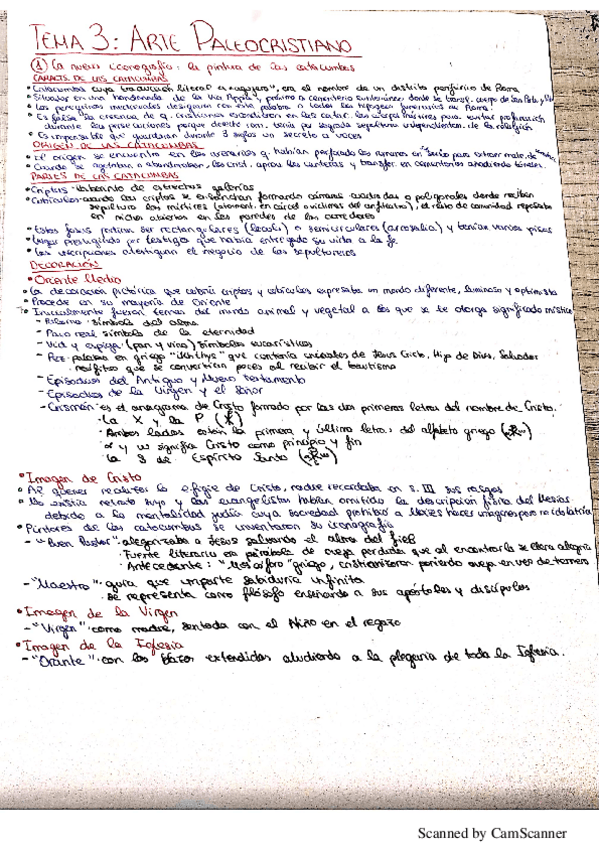 TEMA 3: ARTE PALEOCRISTIANO
① La nueva iconografía: la pintura de las catacumbas
CARACTS DE LAS CATACUMBAS
• Catacumba cuya traducción literal es "agujero", era el nombre de un distrito periférico de Roma
• Situados en una hondonada de la Vía Appia y próximo a cementerio subterráneo donde se transf. cuerpo de San Pablo y
• Los peregrinos medievales designaron con esta palabra a todos los hipogeos funerarios de Roma.
• Es falsa la creencia de q. cristianos escondían en las catac. los cuerpos mártires para evitar profanación
durante las persecuciones porque derecho rom. tenía por sagrada sepultura independientem. de la religión
• Es imposible que guardaran durante 3 siglos un secreto a voces
ORIGEN DE LAS CATACUMBAS
• El origen se encuentra en los areneros q. habían perforado los romanos en
• Cuando se agotaban o abandonaban, los crist. aprov. las canteras y transfor. en cementerios
PARTES DE LAS CATACUMBAS
• Criptas: laberinto de estrechas galerías
• Cubículos: cuando las criptas se ensanchan formando cámaras cuadradas o poligonales donde reciben
sepultura los mártires (muertos en cárcel o víctimas del anfiteatro), el resto de comunidad reposaba
en nichos abiertos en las paredes de los corredores
• Estas fosas podían ser rectangulares (loculi) o semicirculares (arcosolia) y tenían varios pisos
• Lugar prestigiado por testigos que había entregado su vida a la fe
• Las inscripciones atestiguan el negocio de las sepulturas
DECORACIÓN
• Oriente Medio
• La decoración pictórica que cubría criptas y cubículos expresaba un mundo diferente, luminoso y optimista
• Procede en su mayoría de Oriente
• Inicialmente fueron temas del mundo animal y vegetal a los que se le otorga significado místico
- Paloma: símbolo del alma
- Pavo real símbolo de la eternidad
- Vid y espiga (pan y vino) símbolos eucarísticos
- Pez: palabra en griego "Ichthys" que contenía iniciales de Jesús Cristo, Hijo de Dios, Salvador
neófitos que se convertirían peces al recibir el bautismo
- Episodios del Antiguo y Nuevo Testamento
- Episodios de la Virgen y el Señor
- Crismón: es el anagrama de Cristo formado por las dos primeras letras del nombre de Cristo.
• La X y la P
• Ambos lados están la primera y última letra: del alfabeto griego
• α y ω significa Cristo como principio y fin
• La S de Espíritu Santo
• Imagen de Cristo
• Al querer realizar la efigie de Cristo, nadie recordaba en s. III sus rasgos
• No existía retrato suyo y los evangelistas habían omitido la descripción física del Mesías
debido a la mentalidad judía cuya sociedad prohibió a Moisés hacer imágenes
• Pintores de las catacumbas se inventaron su iconografía
- "Buen Pastor": alegorizaba a Jesús salvando el alma del fiel
• Fuente literaria es parábola de oveja perdida que al encontrarla se llena alegría
• Antecedente: "Moscóforo" griego, cristianizaron poniendo oveja en vez de ternero
- "Maestro": guía que imparte sabiduría infinita
• Se representa como filósofo enseñando a sus apóstoles y discípulos
• Imagen de la Virgen
- "Virgen": como madre, sentada con el Niño en el regazo
• Imagen de la Iglesia
- "Orante": con los brazos extendidos aludiendo a la plegaria de toda la Iglesia.
Scanned by CamScanner